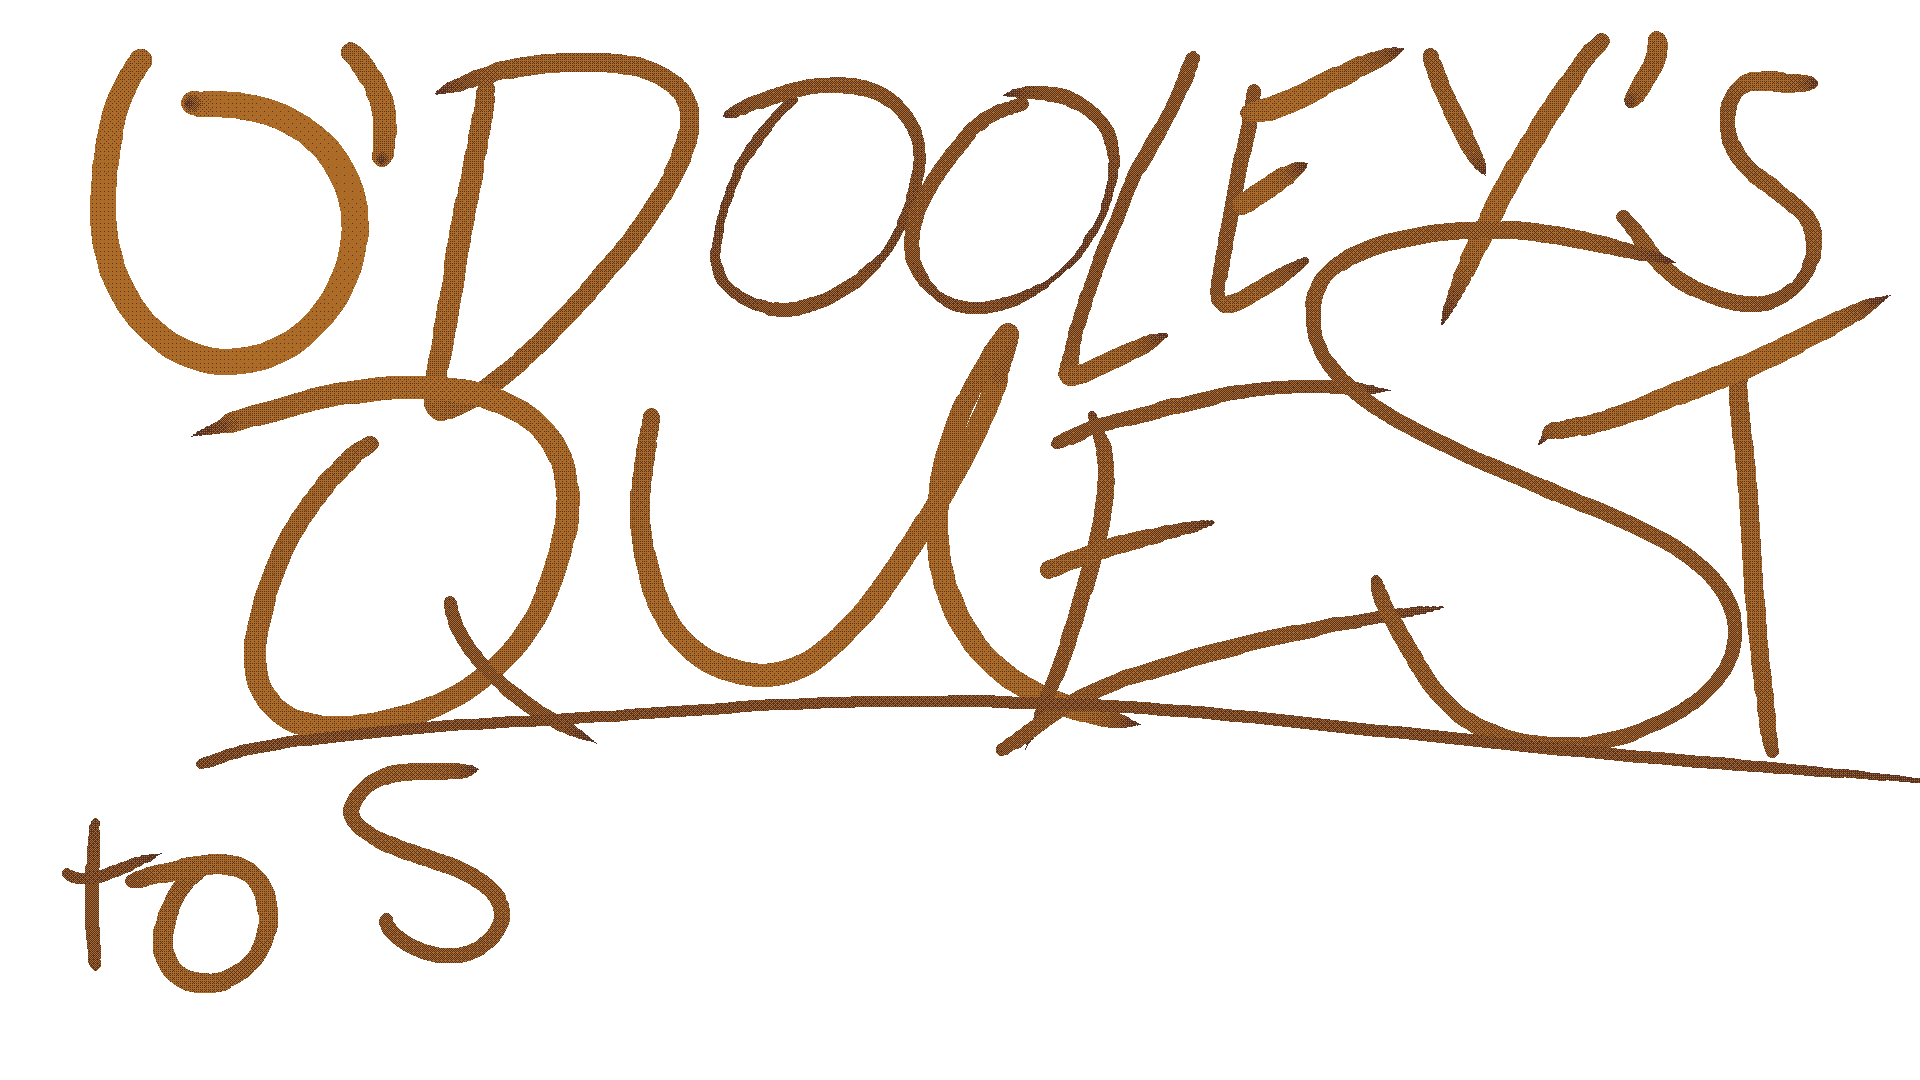 O'DOOLEY'S
QUEST
to S